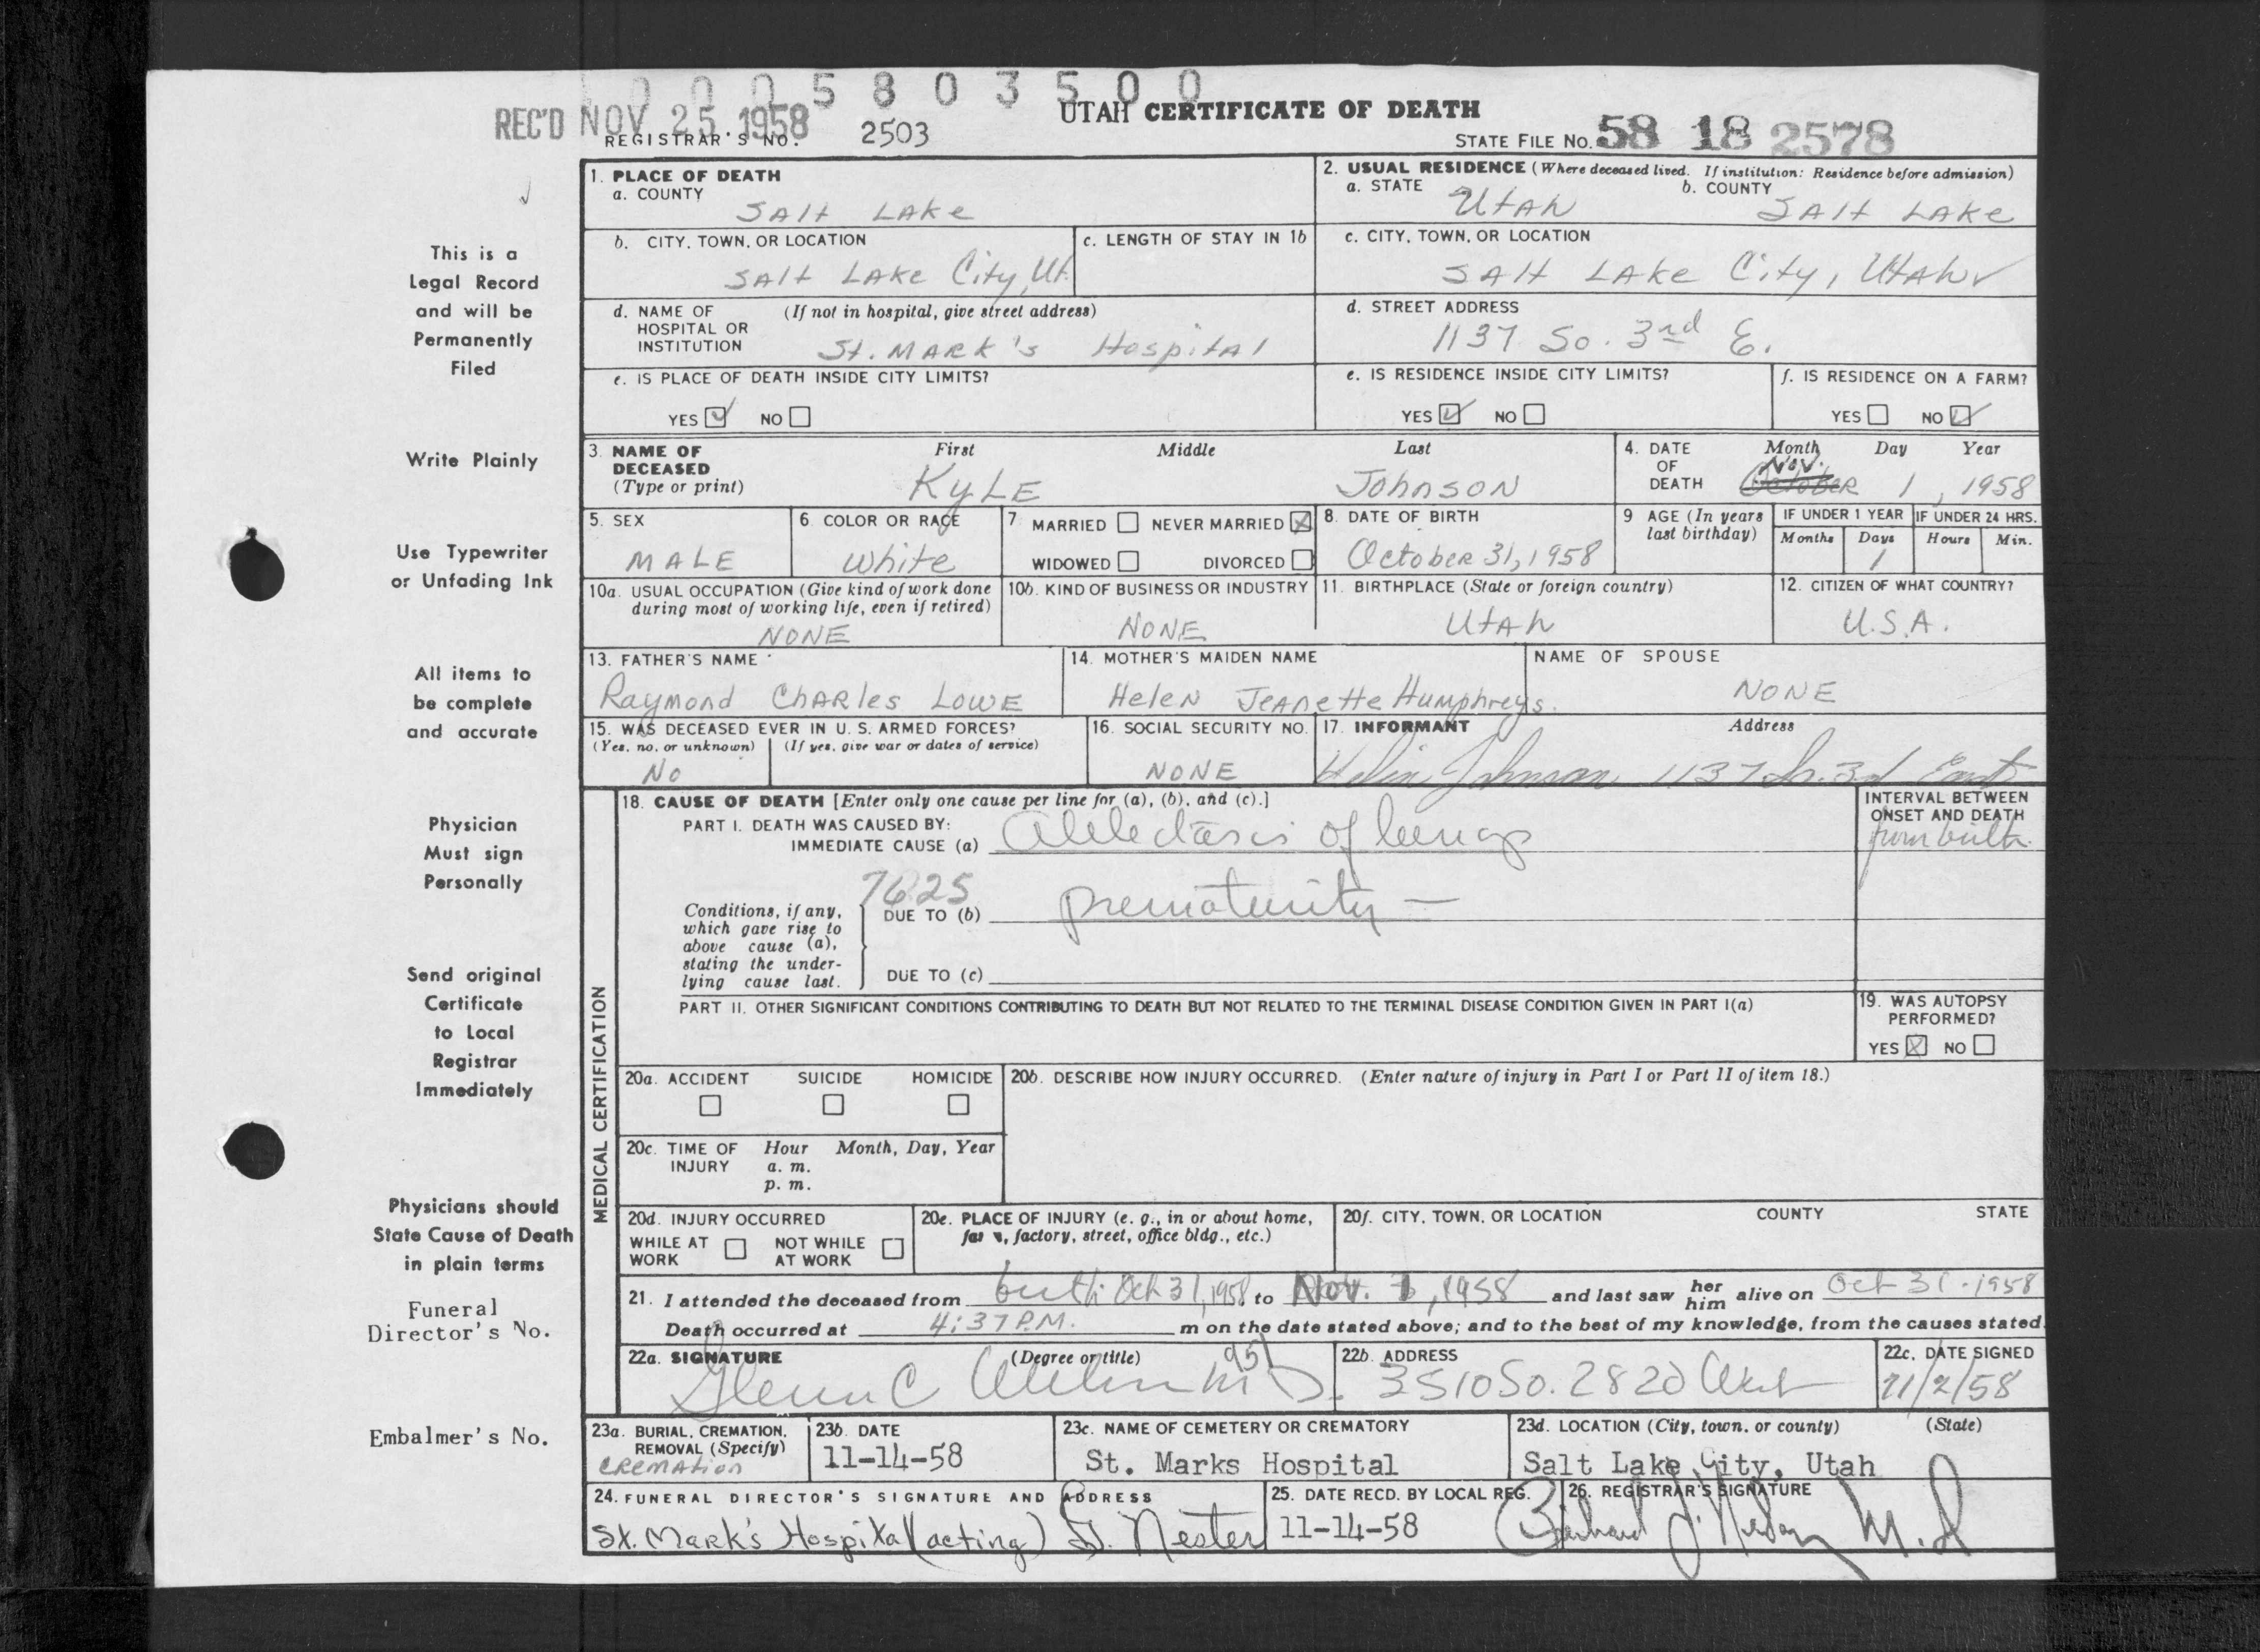 0 0 0 5 8 0 3 5 0 0
REC'D NOV 25 1958
UTAH CERTIFICATE OF DEATH
REGISTRAR'S NO. 2503
STATE FILE NO. 58 18 2578
This is a
Legal Record
and will be
Permanently
Filed
Write Plainly
Use Typewriter
or Unfading Ink
All items to
be complete
and accurate
Physician
Must sign
Personally
Send original
Certificate
to Local
Registrar
Immediately
Physicians should
State Cause of Death
in plain terms
Funeral
Director's No.
Embalmer's No.
1. PLACE OF DEATH
a. COUNTY
Salt Lake
2. USUAL RESIDENCE (Where deceased lived. If institution: Residence before admission)
a. STATE Utah b. COUNTY Salt Lake
b. CITY, TOWN, OR LOCATION
Salt Lake City, Ut.
c. LENGTH OF STAY IN 1b
c. CITY, TOWN, OR LOCATION
Salt Lake City, Utah
d. NAME OF (If not in hospital, give street address)
HOSPITAL OR
INSTITUTION St. Mark's Hospital
d. STREET ADDRESS
1137 So. 3rd E.
e. IS PLACE OF DEATH INSIDE CITY LIMITS?
YES NO
e. IS RESIDENCE INSIDE CITY LIMITS?
YES NO
f. IS RESIDENCE ON A FARM?
YES NO
3. NAME OF First Middle Last
DECEASED
(Type or print) Kyle Johnson
4. DATE Month Day Year
OF Nov.
DEATH October 1, 1958
5. SEX
MALE
6. COLOR OR RACE
White
7. MARRIED NEVER MARRIED X
WIDOWED DIVORCED
8. DATE OF BIRTH
October 31, 1958
9 AGE (In years
last birthday)
IF UNDER 1 YEAR
Months Days
1
IF UNDER 24 HRS.
Hours Min.
10a. USUAL OCCUPATION (Give kind of work done
during most of working life, even if retired)
NONE
10b. KIND OF BUSINESS OR INDUSTRY
NONE
11. BIRTHPLACE (State or foreign country)
Utah
12. CITIZEN OF WHAT COUNTRY?
U.S.A.
13. FATHER'S NAME
Raymond Charles Lowe
14. MOTHER'S MAIDEN NAME
Helen Jeanette Humphreys.
NAME OF SPOUSE
NONE
15. WAS DECEASED EVER IN U. S. ARMED FORCES?
(Yes, no, or unknown) (If yes, give war or dates of service)
No
16. SOCIAL SECURITY NO.
NONE
17. INFORMANT Address
Helen Johnson 1137 So. 3d East
MEDICAL CERTIFICATION
18. CAUSE OF DEATH [Enter only one cause per line for (a), (b), and (c).]
PART I. DEATH WAS CAUSED BY:
IMMEDIATE CAUSE (a) Atelectasis of lungs
INTERVAL BETWEEN
ONSET AND DEATH
from birth.
7625
Conditions, if any,
which gave rise to
above cause (a),
stating the under-
lying cause last.
DUE TO (b) prematurity —
DUE TO (c)
PART II. OTHER SIGNIFICANT CONDITIONS CONTRIBUTING TO DEATH BUT NOT RELATED TO THE TERMINAL DISEASE CONDITION GIVEN IN PART I(a)
19. WAS AUTOPSY
PERFORMED?
YES X NO
20a. ACCIDENT SUICIDE HOMICIDE
20b. DESCRIBE HOW INJURY OCCURRED. (Enter nature of injury in Part I or Part II of item 18.)
20c. TIME OF Hour Month, Day, Year
INJURY a. m.
p. m.
20d. INJURY OCCURRED
WHILE AT NOT WHILE
WORK AT WORK
20e. PLACE OF INJURY (e. g., in or about home,
farm, factory, street, office bldg., etc.)
20f. CITY, TOWN, OR LOCATION COUNTY STATE
21. I attended the deceased from birth Oct 31, 1958 to Nov. 1, 1958 and last saw her him alive on Oct 31 - 1958
Death occurred at 4:37 P.M. m on the date stated above; and to the best of my knowledge, from the causes stated.
22a. SIGNATURE (Degree or title) 951
Glenn C M.D.
22b. ADDRESS
3510 So. 2820 West
22c. DATE SIGNED
11/2/58
23a. BURIAL, CREMATION,
REMOVAL (Specify)
CREMATION
23b. DATE
11-14-58
23c. NAME OF CEMETERY OR CREMATORY
St. Marks Hospital
23d. LOCATION (City, town, or county) (State)
Salt Lake City, Utah
24. FUNERAL DIRECTOR'S SIGNATURE AND ADDRESS
St. Mark's Hospital (acting) D. Nester
25. DATE RECD. BY LOCAL REG.
11-14-58
26. REGISTRAR'S SIGNATURE
M.D